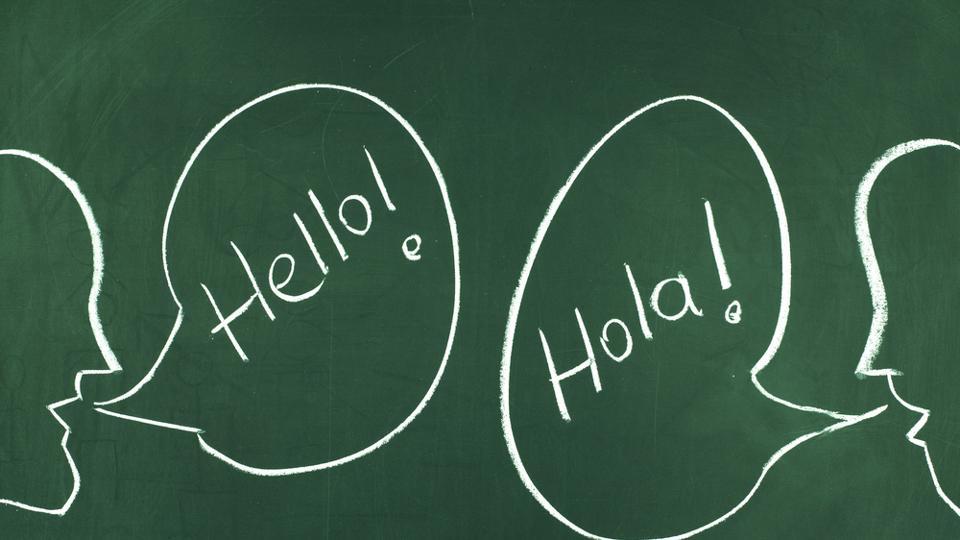 Hello!
Hola!